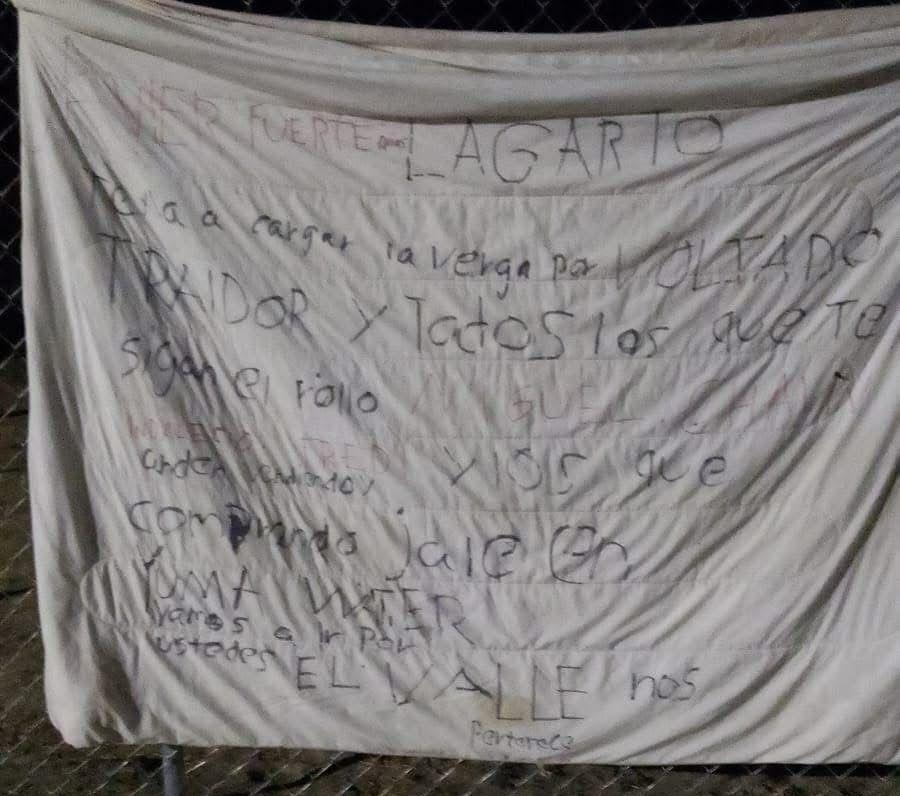 VER FUERTE LAGARTO
Te va a cargar la verga por VOLTADO
TRAIDOR y Todos los que TE
sigan el rollo MIGUEL
y los que
anden vendiendo y
comprando jale en
YUMA WATER
vamos a ir por
ustedes EL VALLE nos
Pertenece